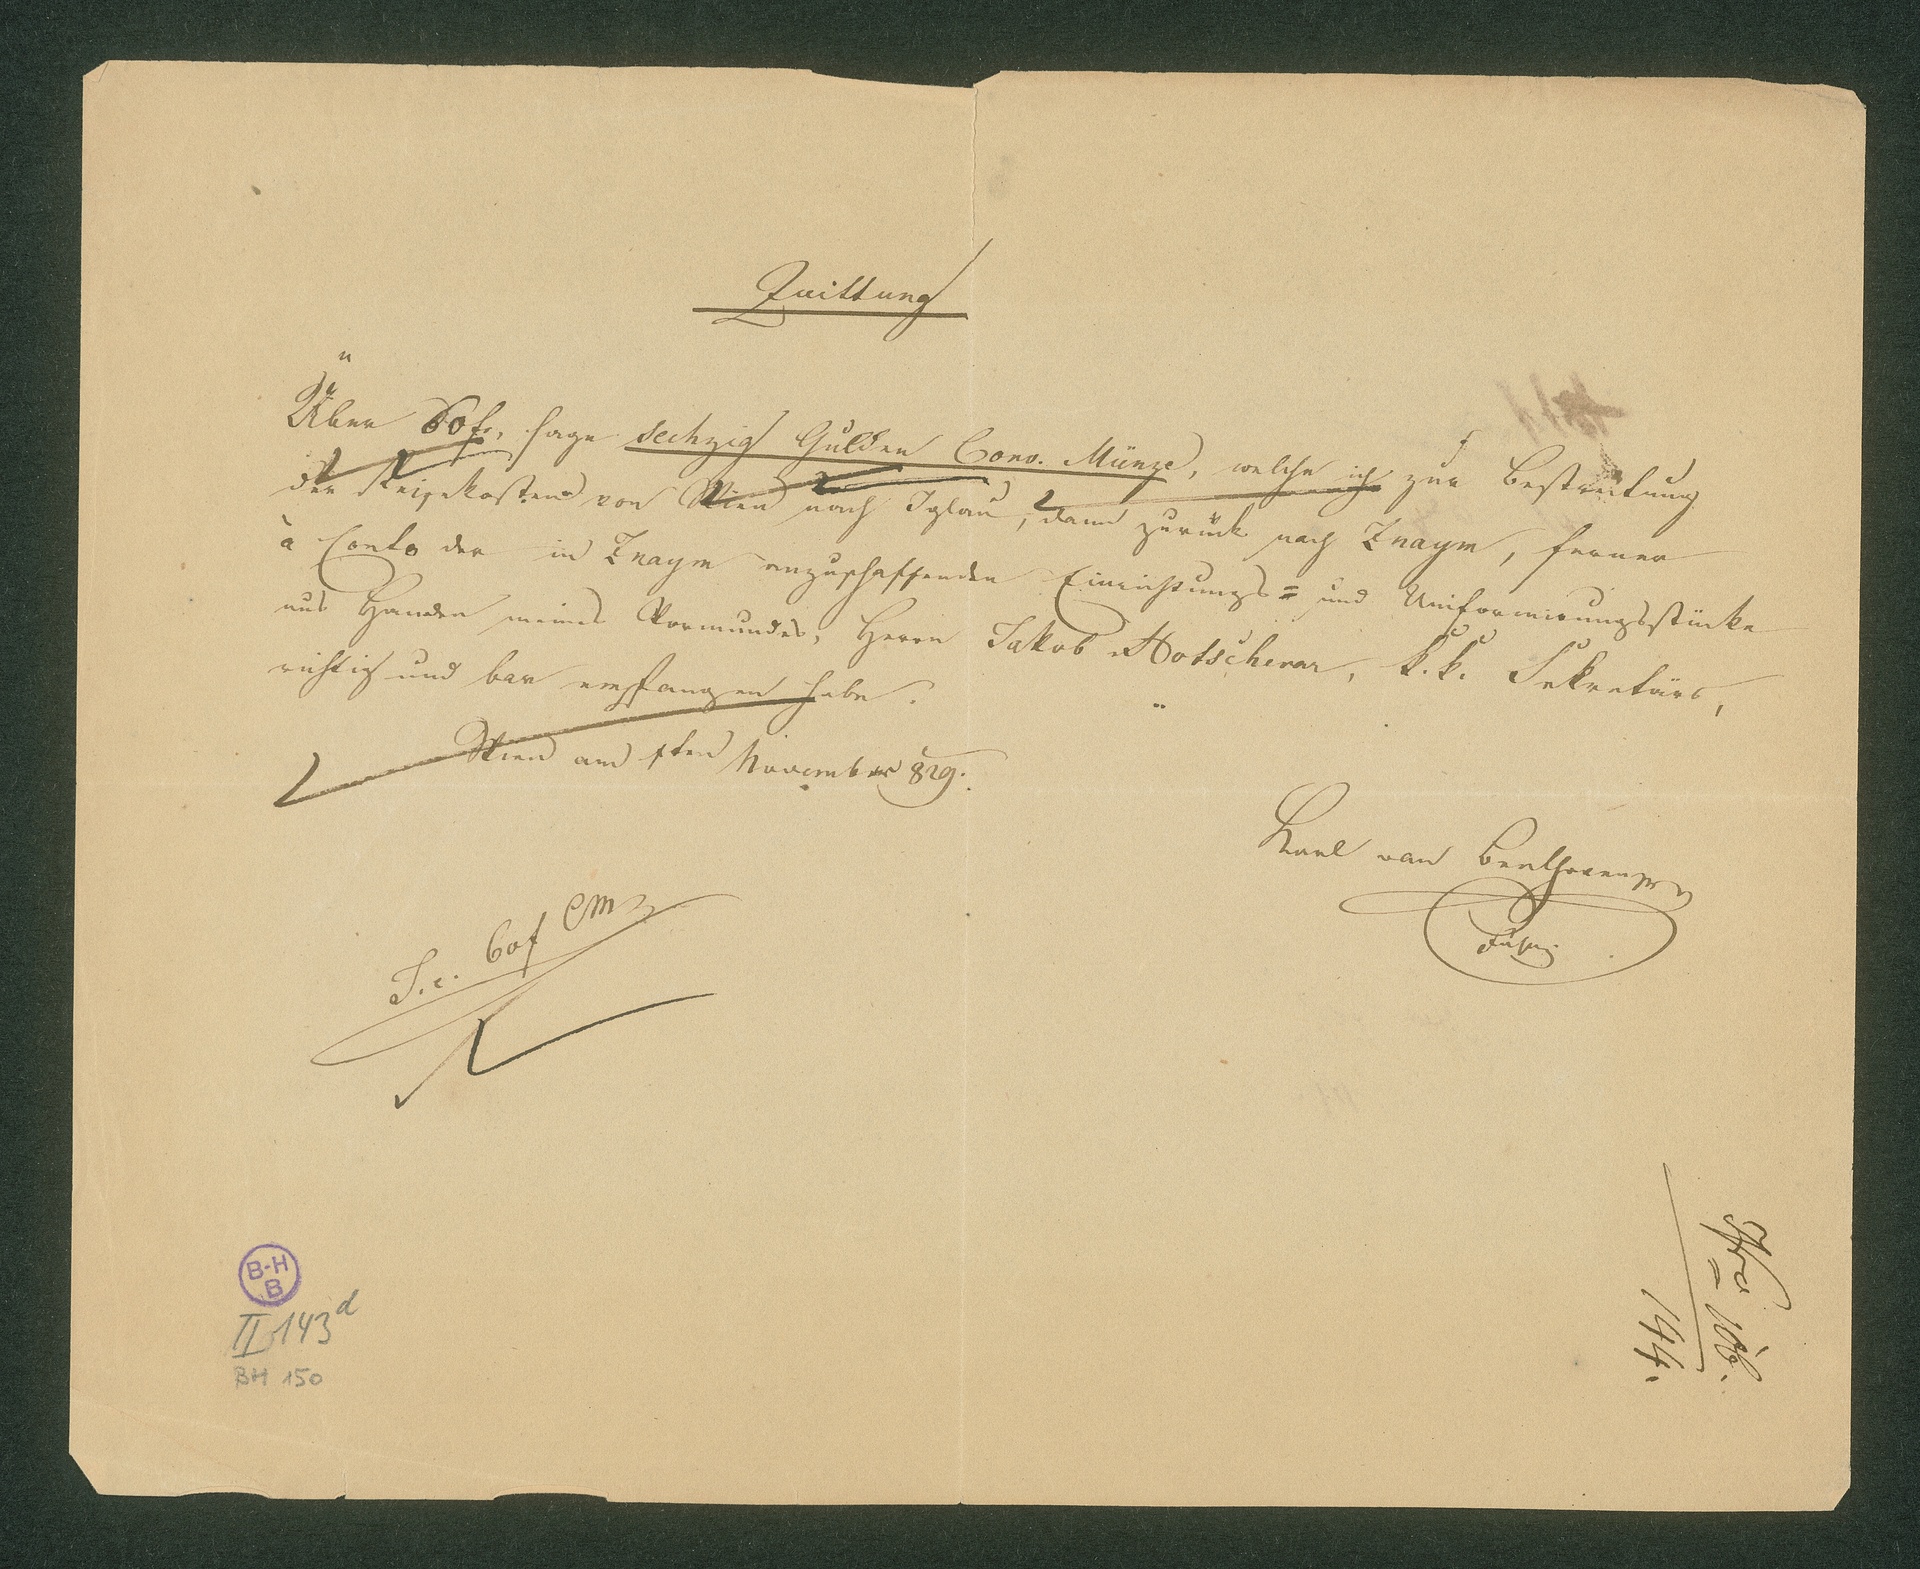 Quittung
Über 60 f., sage sechzig Gulden Conv. Münze, welche ich zur Bestreitung
der Reisekosten von Wien nach Iglau, dann zurück nach Znaym, ferner
à Conto der in Znaym anzuschaffenden Einrichtungs= und Uniformirungsstücke
aus Handen meines Vormundes, Herrn Jakob Hotschevar, k. k. Sekretärs,
richtig und bar empfangen habe.
Wien am ten November 829.
Karl van Beethoven
60 f CM
No 106.
144.
B-H
B
II 143 d
BH 150